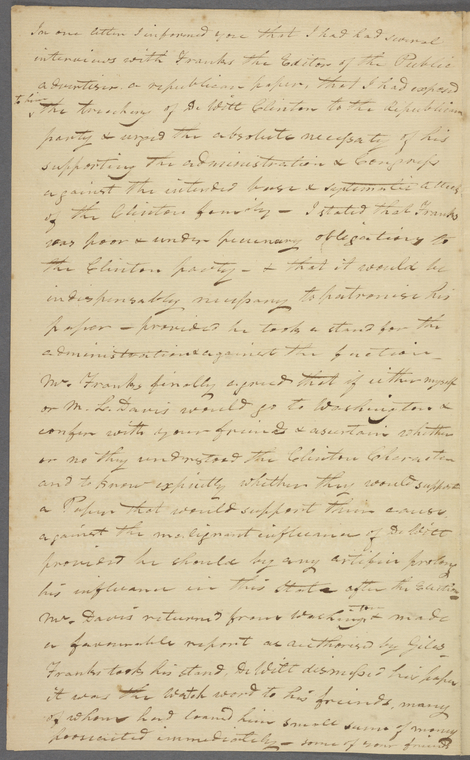 In one letter I informed you that I had had several
interviews with Franks the Editor of the Public
advertiser a republican paper, that I had exposed
to him
the treachery of De Witt Clinton to the Republican
party & urged the absolute necessity of his
supporting the administration & Congress
against the intended base & systematic attack
of the Clinton family - I stated that Franks
was poor & under pecuniary obligations to
the Clinton party - & that it would be
indispensably necessary to patronise his
paper - provided he took a stand for the
administration & against the faction -
Mr. Franks finally agreed that if either myself
or M. L. Davis would go to Washington &
confer with your friends & ascertain whether
or no they understood the Clinton Character
and to know explicitly whether they would support
a Paper that would support their cause
against the malignant influence of De Witt
provided he should by any artifice prolong
his influence in this State after the Election
Mr. Davis returned from Washingto & made
a favourable report as authorised by Giles
Franks took his stand, De Witt dismissed his paper
it was the Watch word to his friends, many
of whom had loaned him small sums of money
prosecuted immediately - some of your friends